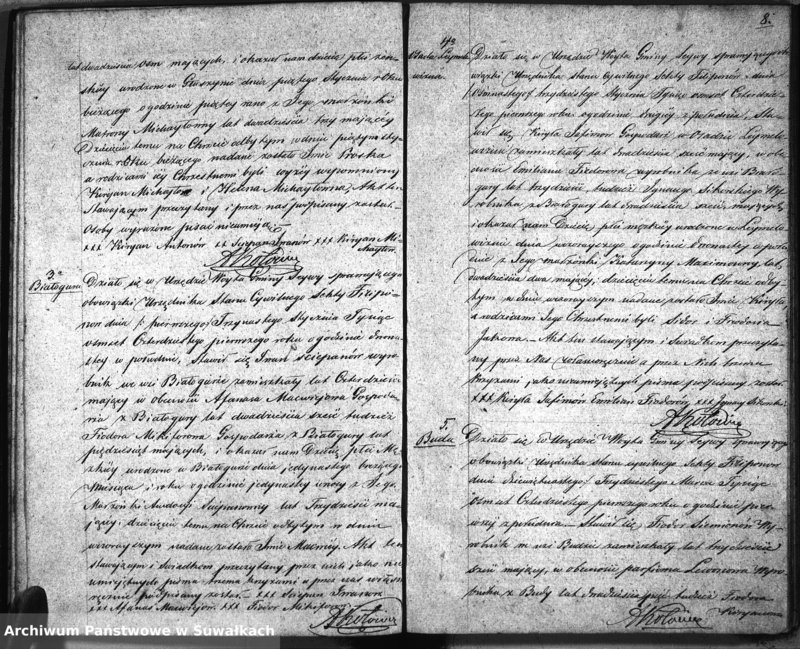 lat dwadzieścia osm mających, i okazał nam dziecię płci żeń-
skiéy urodzone w Głuszynie dnia piątego Stycznia roku
bieżącego o godzinie piątey rano z Jego małżonki
Matrony Michayłowny lat dwadzieścia trzy mającéy
Dziecięciu temu na Chrzcie odbytym w dniu piątym Sty-
cznia roku bieżącego nadane zostało Imie Proska
a rodzicami iéy Chrzestnemi byli wyżéy wspomniony
Kiryan Michayłow i Helena Michayłowna, Akt ten
Stawającym przeczytany i przez nas podpisany został.
Osoby wyrażone pisać nieumieją
xxx Kiryan Antonów xxx xxx Kiryan Mi-
chayłow
3.
Białogura
Działo się w Urzędzie Wóyta Gminy Seywy sprawującego
obowiązki Urzędnika Stanu Cywilnego Sekty Filipo-
now dnia pierwszego/ Trzynastego Stycznia Tysiąc
osmset Czterdziestego pierwszego roku o godzinie dwuna-
stey w południe, Stawił się Iwan Sciepanów wyro-
bnik we wsi Białogurze zamieszkały lat Czterdzieści
mający w obecności Afanasa Macwiejowa Gospoda-
rza z Białogury lat dwadzieścia sześć tudzież
Fiodora Mikiforowa Gospodarza z Białogury lat
pięćdziesiąt mających, i okazał nam Dziecię płci Mę-
zkiéy urodzone w Białogurze dnia jedynastego bieżącego
Miesiąca i roku o godzinie jedynastéy w nocy z Jego
Małżonki lat Trzydzieści ma-
jącéy; dziecięciu temu na Chrzcie odbytym w dniu
wczorayszym nadane zostało Imie Macwiéy, Akt ten
stawającym i Świadkom przeczytany przez nich jako nie
umiejętnych pisma trzema krzyżami a przez nas własno-
ręcznie podpisany został. xxx Sciepan Iwanow
xxx Afanas Macwiejów xxx Fiodor Mikiforow
8.
4.
Buda
Działo się w Urzędzie Wóyta Gminy Seywy sprawującego obo-
wiązki Urzędnika Stanu Cywilnego Sekty Filiponow dnia
Osmnastego/ trzydziestego Stycznia Tysiąc osmset Czterdzie-
stego pierwszego roku o godzinie drugiéy z południa, Sta-
wił się Kiryła Jafimow Gospodarz w Osadzie
zamieszkały lat dwadzieścia sześć mający, w obe-
cności Emiliana Fiedorowa, wyrobnika ze wsi Biało-
gury lat trzydzieści tudzież Ignacego Wy-
robnika z Białogury lat dwadzieścia sześć mających
i okazał nam Dziecię płci męzkiéy urodzone w
dnia wczorayszego o godzinie
z Jego małżonki Katarzyny Maximowny lat
dwadzieścia dwa mającéy; dziecięciu temu na Chrzcie odby-
tym w dniu wczorayszym nadane zostało Imie Kiryła
a rodzicami Jego Chrzestnemi byli Sidor i Fiodosia
Akt ten stawającym i Świadkom przeczyta-
ny przez Nas własnoręcznie a przez Nich trzema
Krzyżami jako nieumiejętnych pisma podpisany został.
xxx Kiryła Jafimow Emilian Fiedorow xxx Ignacy
5.
Buda
Działo się w Urzędzie Wóyta Gminy Seywy sprawującego
obowiązki Urzędnika Stanu cywilnego Sekty Filiponow
dnia Dziewiętnastego/ Trzydziestego Marca Tysiąc
osmset Czterdziestego pierwszego roku o godzinie pier-
wszéy z południa Stawił się Fiodor Siemionow Wy-
robnik we wsi Budzie zamieszkały lat trzydzieści
sześć mający, w obecności Wyro-
bnika z Budy lat dwadzieścia pięć tudzież Fiodora
Kiryanowa
Archiwum Państwowe w Suwałkach